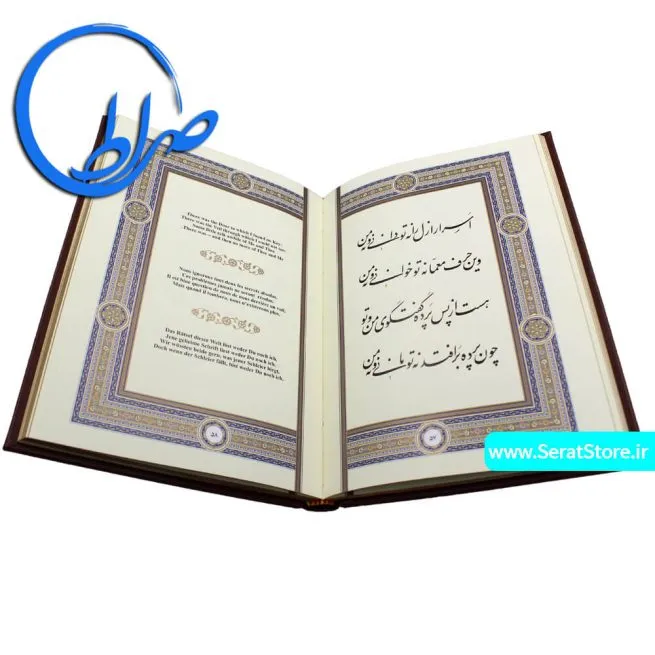 صراط
اسرار ازل را نه تو دانی و نه من
وین حرف معما نه تو خوانی و نه من
هست از پس پرده گفتگوی من و تو
چون پرده برافتد نه تو مانی و نه من
There was the Door to which I found no Key:
There was the Veil through which I could not see:
Some little talk awhile of Me and Thee
There was - and then no more of Thee and Me
Nous ignorons tout dans les secrets absolus.
Ces problèmes jamais ne seront résolus.
Il est bien question de nous derrière un voil,
Mais quand il tombera, nous n'existerons plus.
Das Rätsel dieser Welt löst weder Du noch ich,
Jene geheime Schrift liest weder Du noch ich.
Wir wüssten beide gern, was jener Schleier birgt,
Doch wenn der Schleier fällt, bist weder Du noch ich.
۵۸
www.SeratStore.ir